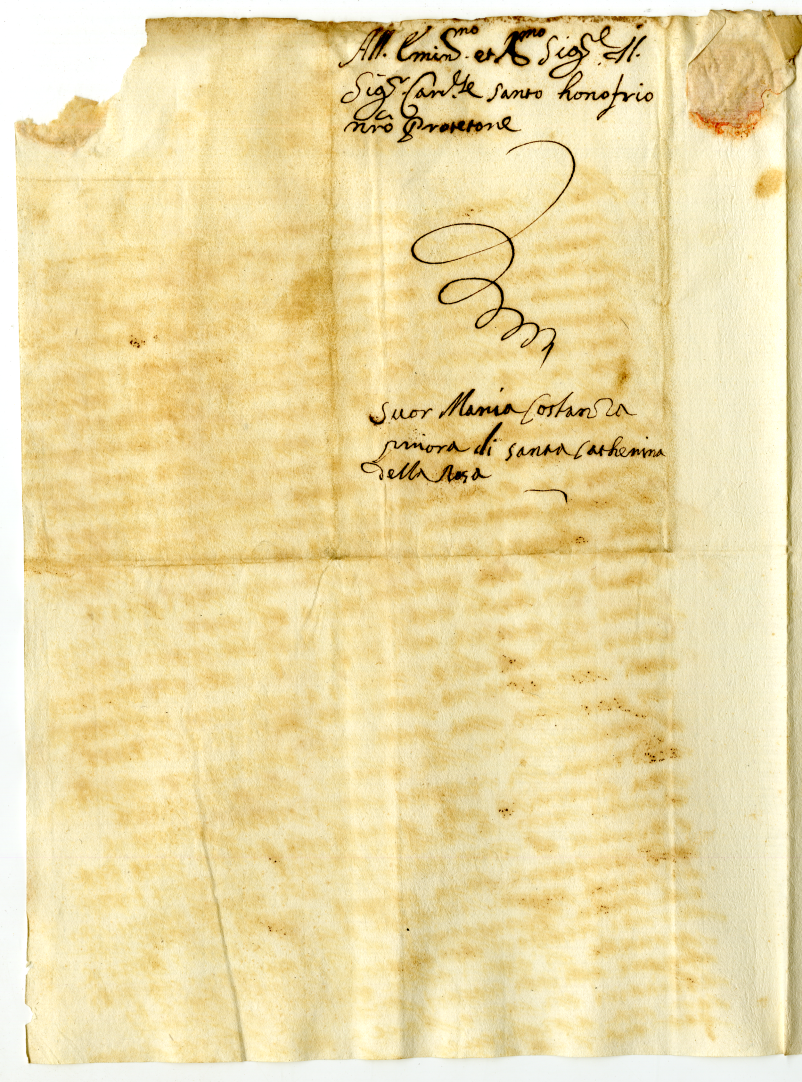 All. Emin.mo et R.mo Sig.re Il
Sig.r Card.le santo honofrio
nrõ Protetore
Suor Maria Costanza
priora di santa Catherina
della Rosa